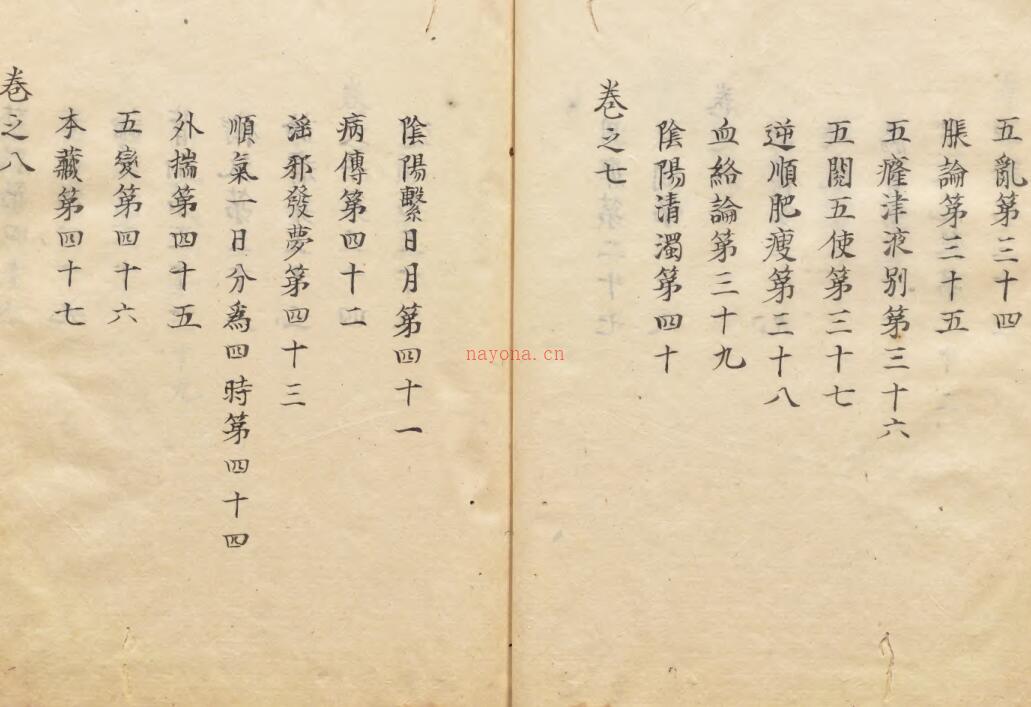 五亂第三十四
脹論第三十五
五癃津液别第三十六
五閱五使第三十七
逆順肥瘦第三十八
血絡論第三十九
陰陽清濁第四十
卷之七
陰陽繫日月第四十一
病傳第四十二
淫邪發夢第四十三
順氣一日分爲四時第四十四
外揣第四十五
五變第四十六
本藏第四十七
卷之八
nayona.cn